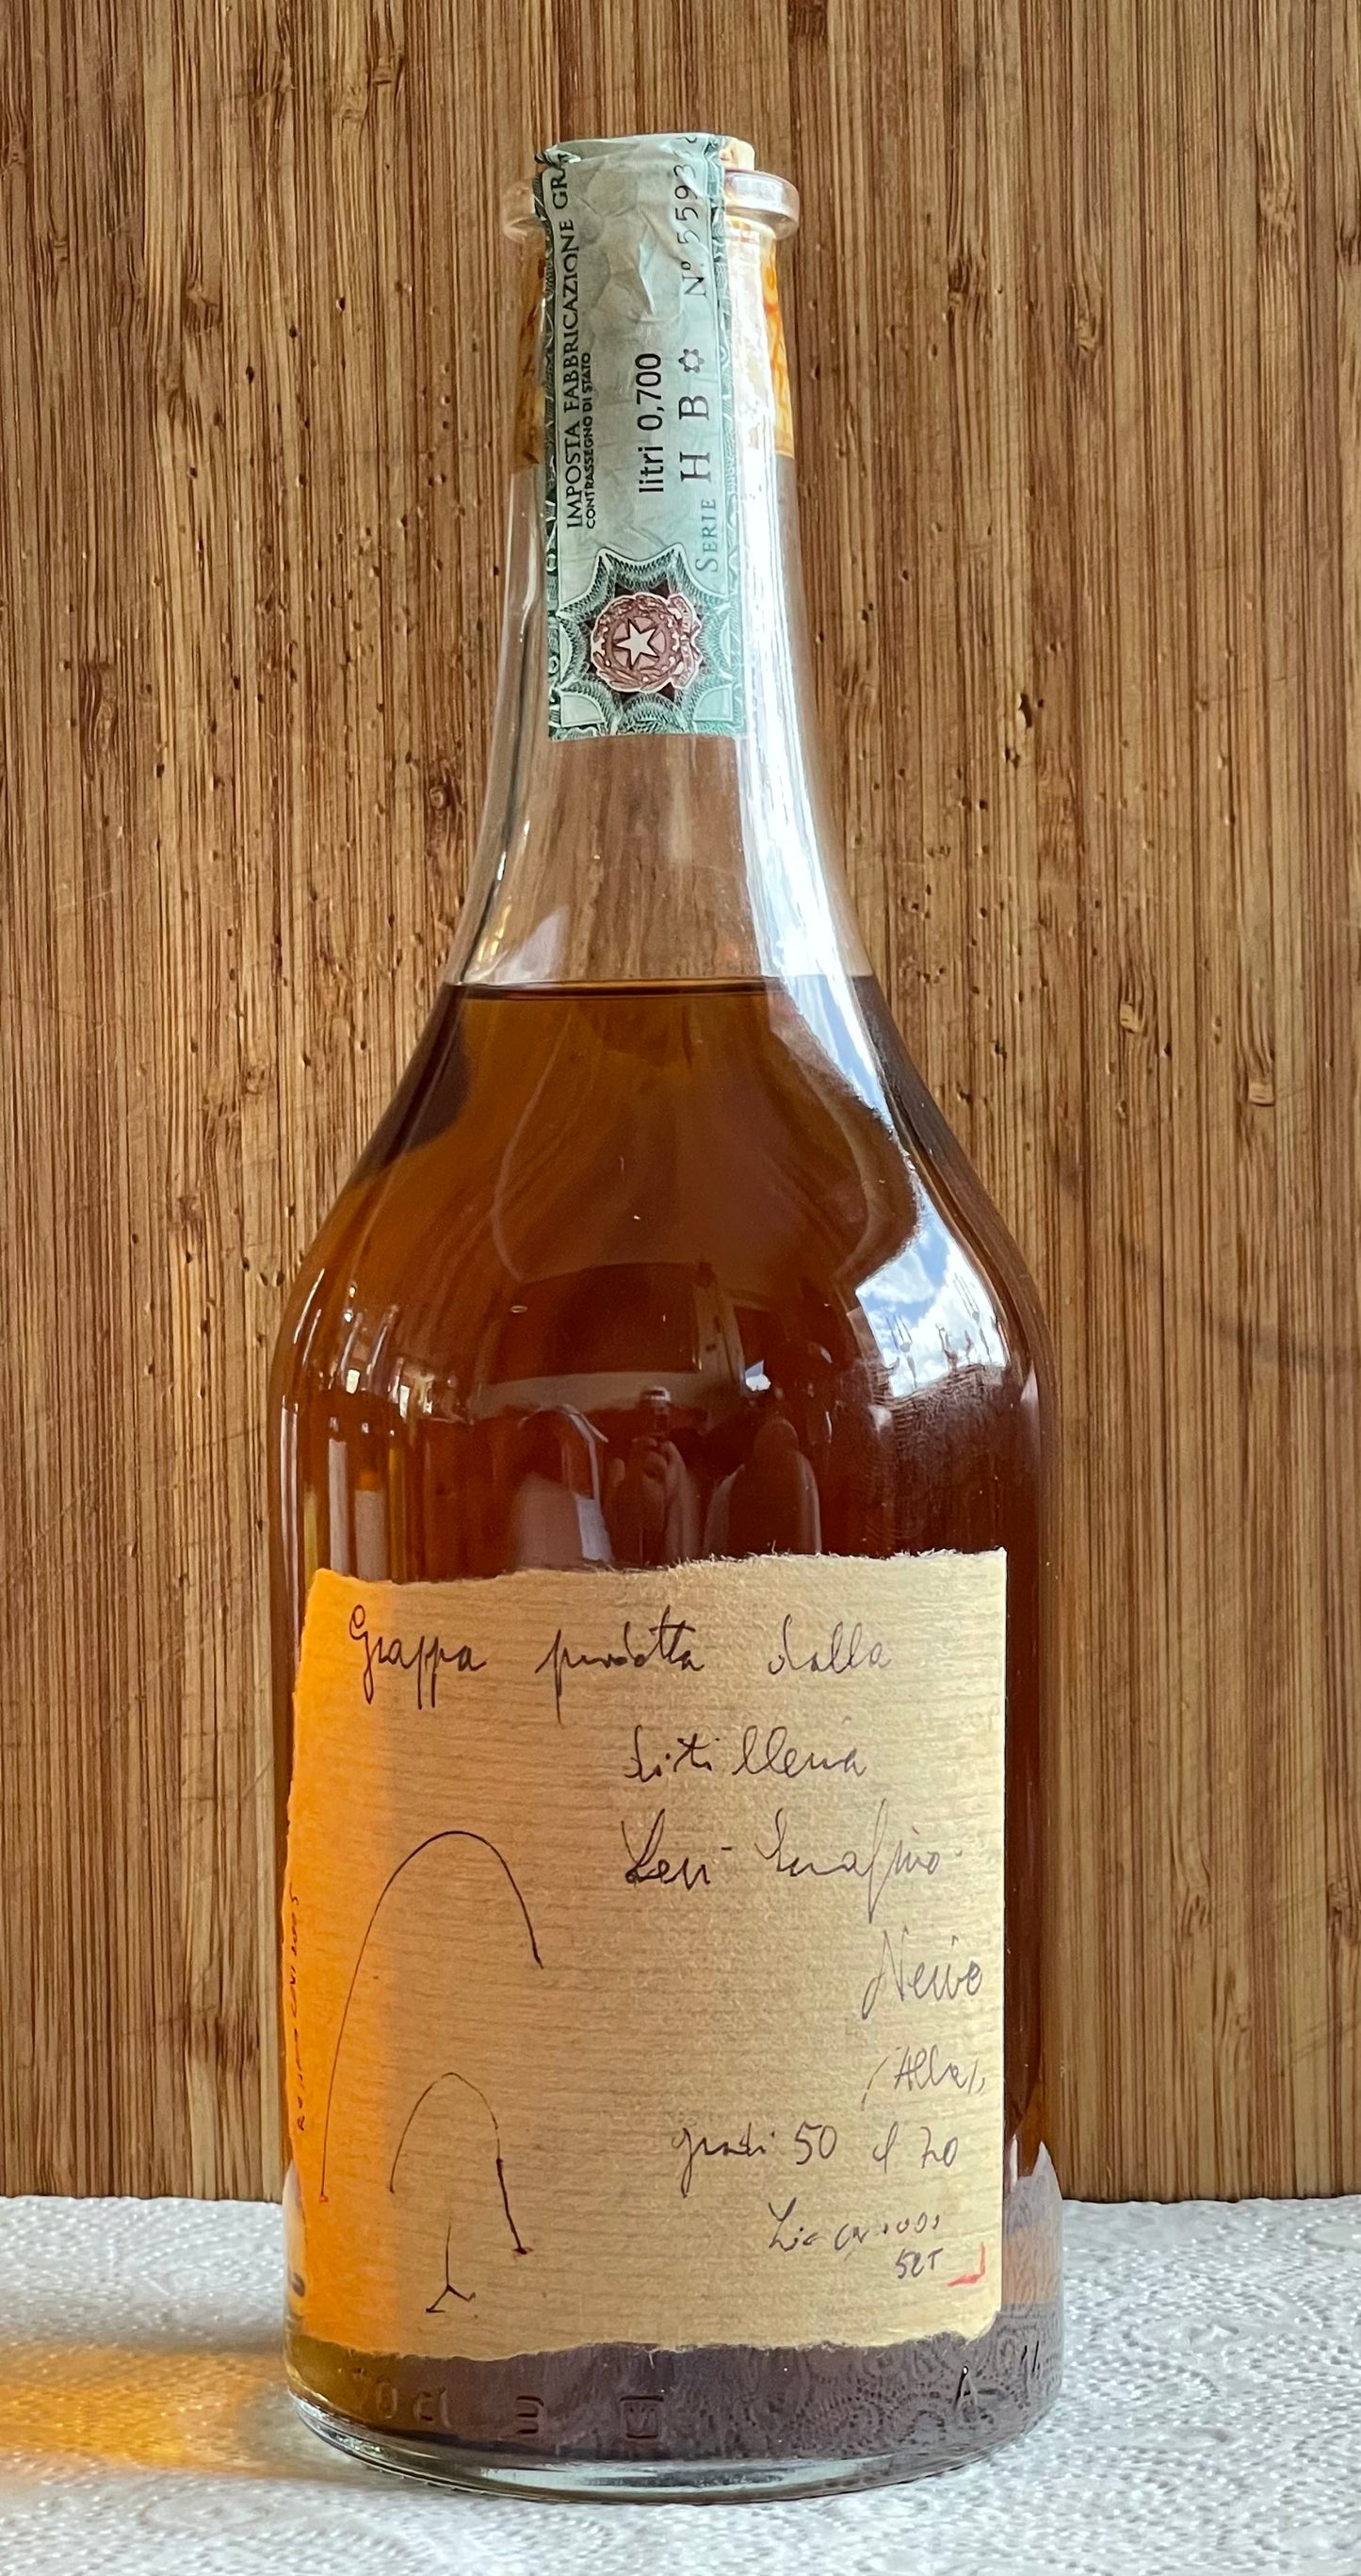 IMPOSTA FABBRICAZIONE GRA
CONTRASSEGNO DI STATO
litri 0,700
SERIE H B N° 5593
Grappa prodotta dalla
distilleria
Levi Serafino
Neive
(Alba)
gradi 50 cl 70
Lic